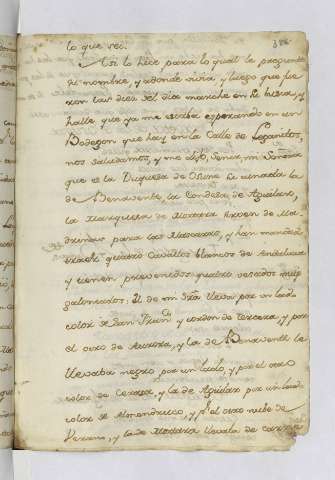 lo que sei.
Asi lo hice para lo qual le pregunte
su nombre, y adonde vivia y luego que fue
ron las diez del dia marche en su busca, y
halle que ya me estaba esperando en un
Bodegon que hay en la Calle de Leganitos,
nos saludamos, y me dijo, Señor, mi Señora
que es la Duquesa de Osuna la uenada la
de Benavente, la Condesa de Aguilar,
la Marquesa de Mortara sirven de Ma
drinas para las Mascaras, y han mandado
traher quatro Cavallos blancos de Andalucia
y tienen prevenidos quatro vestidos mui
galoneados. El de mi Sra lleva por un lado
color de San Fran.co y cordon de tercera, y por
el otro de Aurora, y la de Benavente le
llevaba negro por un lado, y por el otro
color de Cereza, y la de Aguilar por un lado
color de Almendruco, y p.r el otro nube de
Verano, y la de Mortara llevala de carne